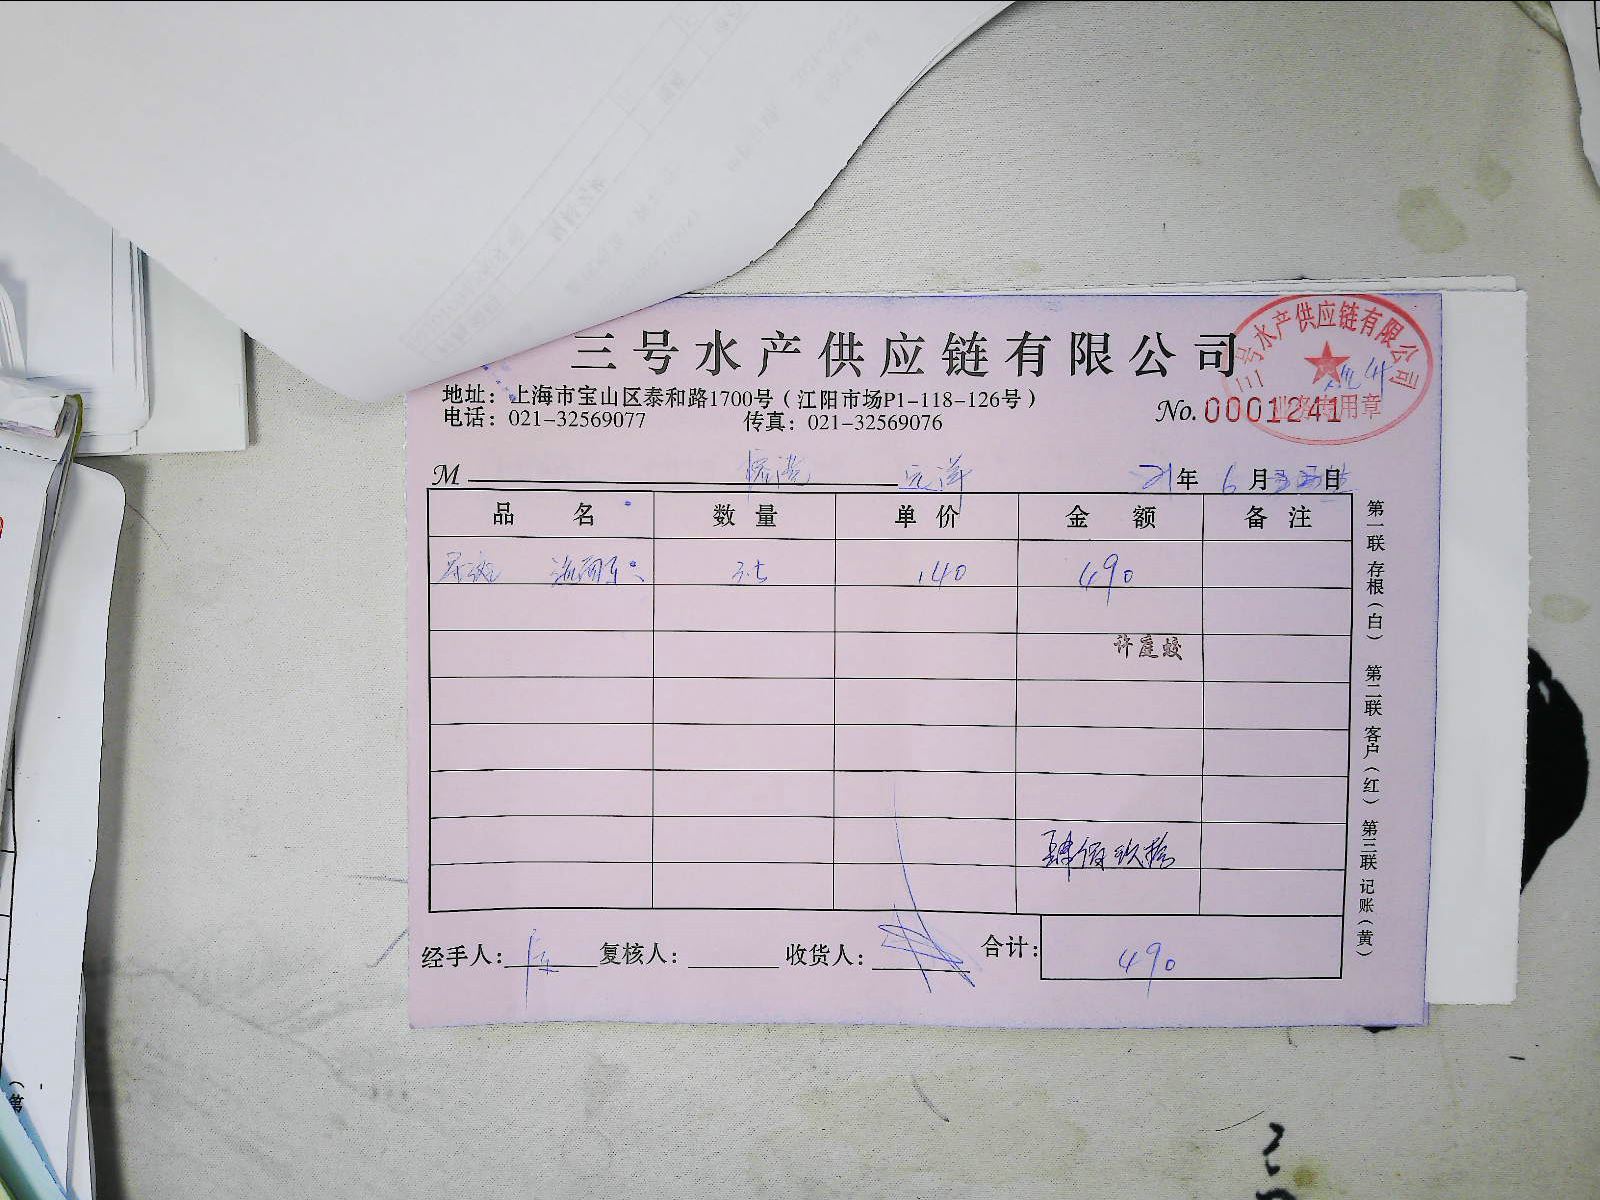 三号水产供应链有限公司
三号水产供应链有限公司
业务专用章
地址：上海市宝山区泰和路1700号（江阳市场P1-118-126号）
电话：021-32569077 传真：021-32569076
No. 0001241
M 远洋 21年 6月 日
品名 数量 单价 金额 备注
3.5 140 490
许庭蛟
肆佰玖拾
经手人： 复核人： 收货人： 合计： 490
第一联 存根（白） 第二联 客户（红） 第三联 记账（黄）